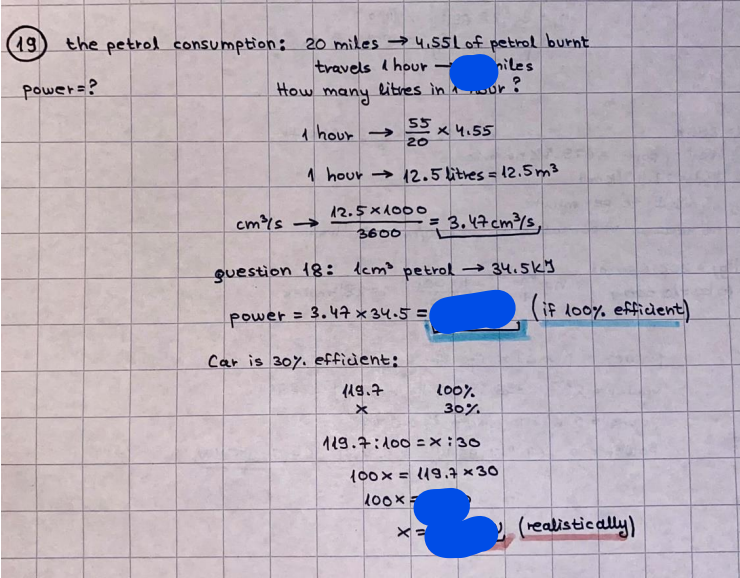 19 the petrol consumption: 20 miles → 4.55l of petrol burnt
travels 1 hour → miles
power=? How many litres in 1 hour?
1 hour → 55/20 × 4.55
1 hour → 12.5 litres = 12.5m³
cm³/s → 12.5×1000/3600 = 3.47cm³/s
question 18: 1cm³ petrol → 34.5kJ
power = 3.47×34.5 = (if 100% efficient)
Car is 30% efficient:
119.7 100%
x 30%
119.7:100 = x:30
100x = 119.7×30
100x =
x = (realistically)